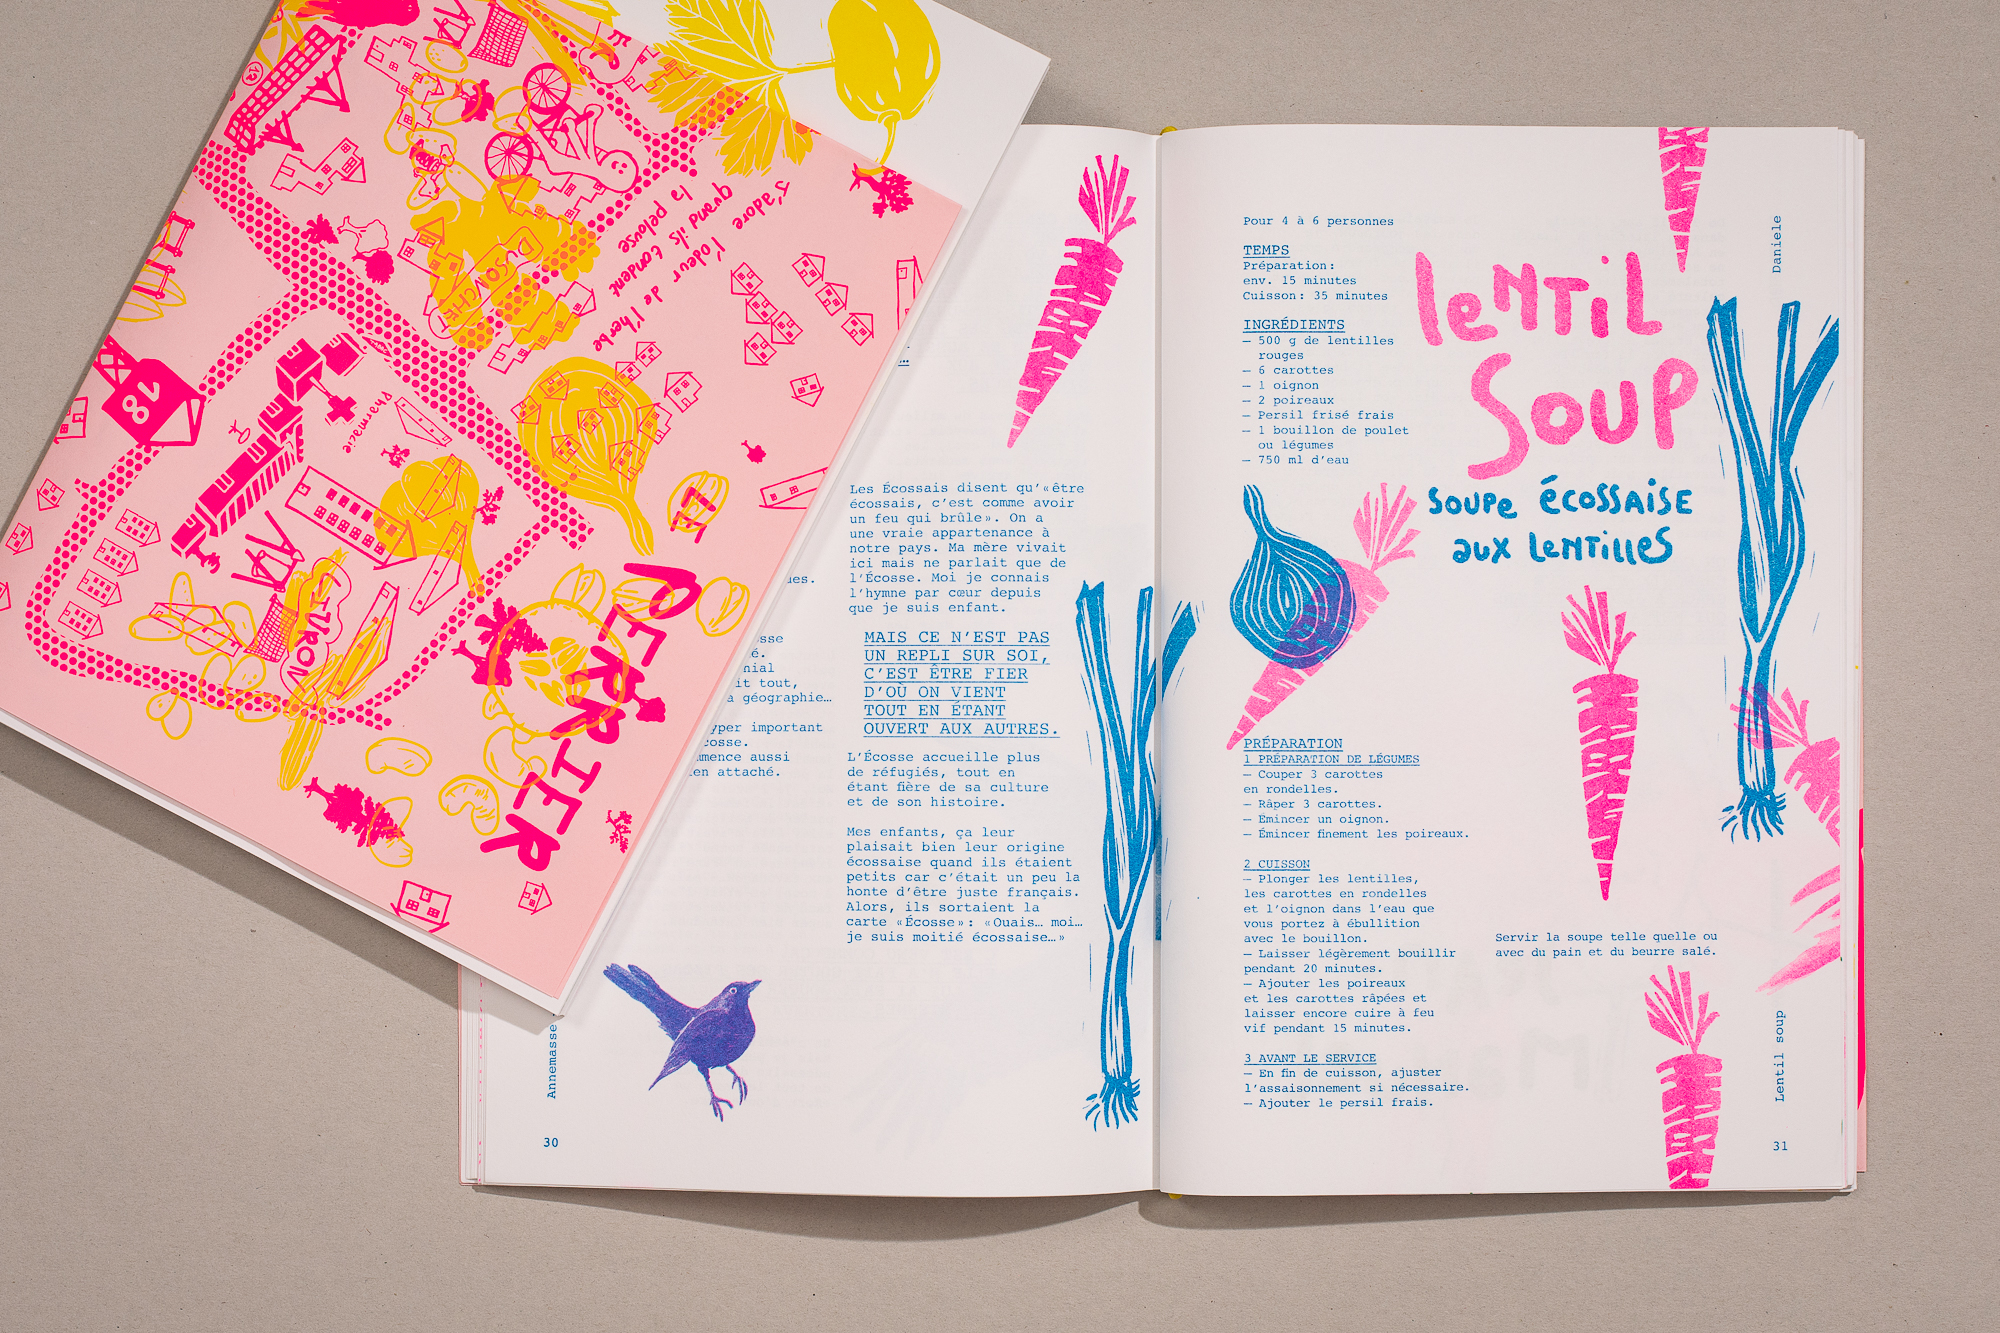 J'adore
l'odeur de l'herbe
quand ils tondent
la pelouse
DUSONCHE
18
Pharmacie
13
LITRON
LE
PERRIER
ues.
sse
é.
nial
it tout,
a géographie…
yper important
cosse.
mence aussi
en attaché.
Les Écossais disent qu'«être
écossais, c'est comme avoir
un feu qui brûle». On a
une vraie appartenance à
notre pays. Ma mère vivait
ici mais ne parlait que de
l'Écosse. Moi je connais
l'hymne par cœur depuis
que je suis enfant.
MAIS CE N'EST PAS
UN REPLI SUR SOI,
C'EST ÊTRE FIER
D'OÙ ON VIENT
TOUT EN ÉTANT
OUVERT AUX AUTRES.
L'Écosse accueille plus
de réfugiés, tout en
étant fière de sa culture
et de son histoire.
Mes enfants, ça leur
plaisait bien leur origine
écossaise quand ils étaient
petits car c'était un peu la
honte d'être juste français.
Alors, ils sortaient la
carte «Écosse»: «Ouais… moi…
je suis moitié écossaise…»
Annemasse
30
Pour 4 à 6 personnes
TEMPS
Préparation:
env. 15 minutes
Cuisson: 35 minutes
INGRÉDIENTS
— 500 g de lentilles
rouges
— 6 carottes
— 1 oignon
— 2 poireaux
— Persil frisé frais
— 1 bouillon de poulet
ou légumes
— 750 ml d'eau
Lentil
Soup
Soupe écossaise
aux lentilles
Daniele
PRÉPARATION
1 PRÉPARATION DE LÉGUMES
— Couper 3 carottes
en rondelles.
— Râper 3 carottes.
— Émincer un oignon.
— Émincer finement les poireaux.
2 CUISSON
— Plonger les lentilles,
les carottes en rondelles
et l'oignon dans l'eau que
vous portez à ébullition
avec le bouillon.
— Laisser légèrement bouillir
pendant 20 minutes.
— Ajouter les poireaux
et les carottes râpées et
laisser encore cuire à feu
vif pendant 15 minutes.
3 AVANT LE SERVICE
— En fin de cuisson, ajuster
l'assaisonnement si nécessaire.
— Ajouter le persil frais.
Servir la soupe telle quelle ou
avec du pain et du beurre salé.
Lentil soup
31